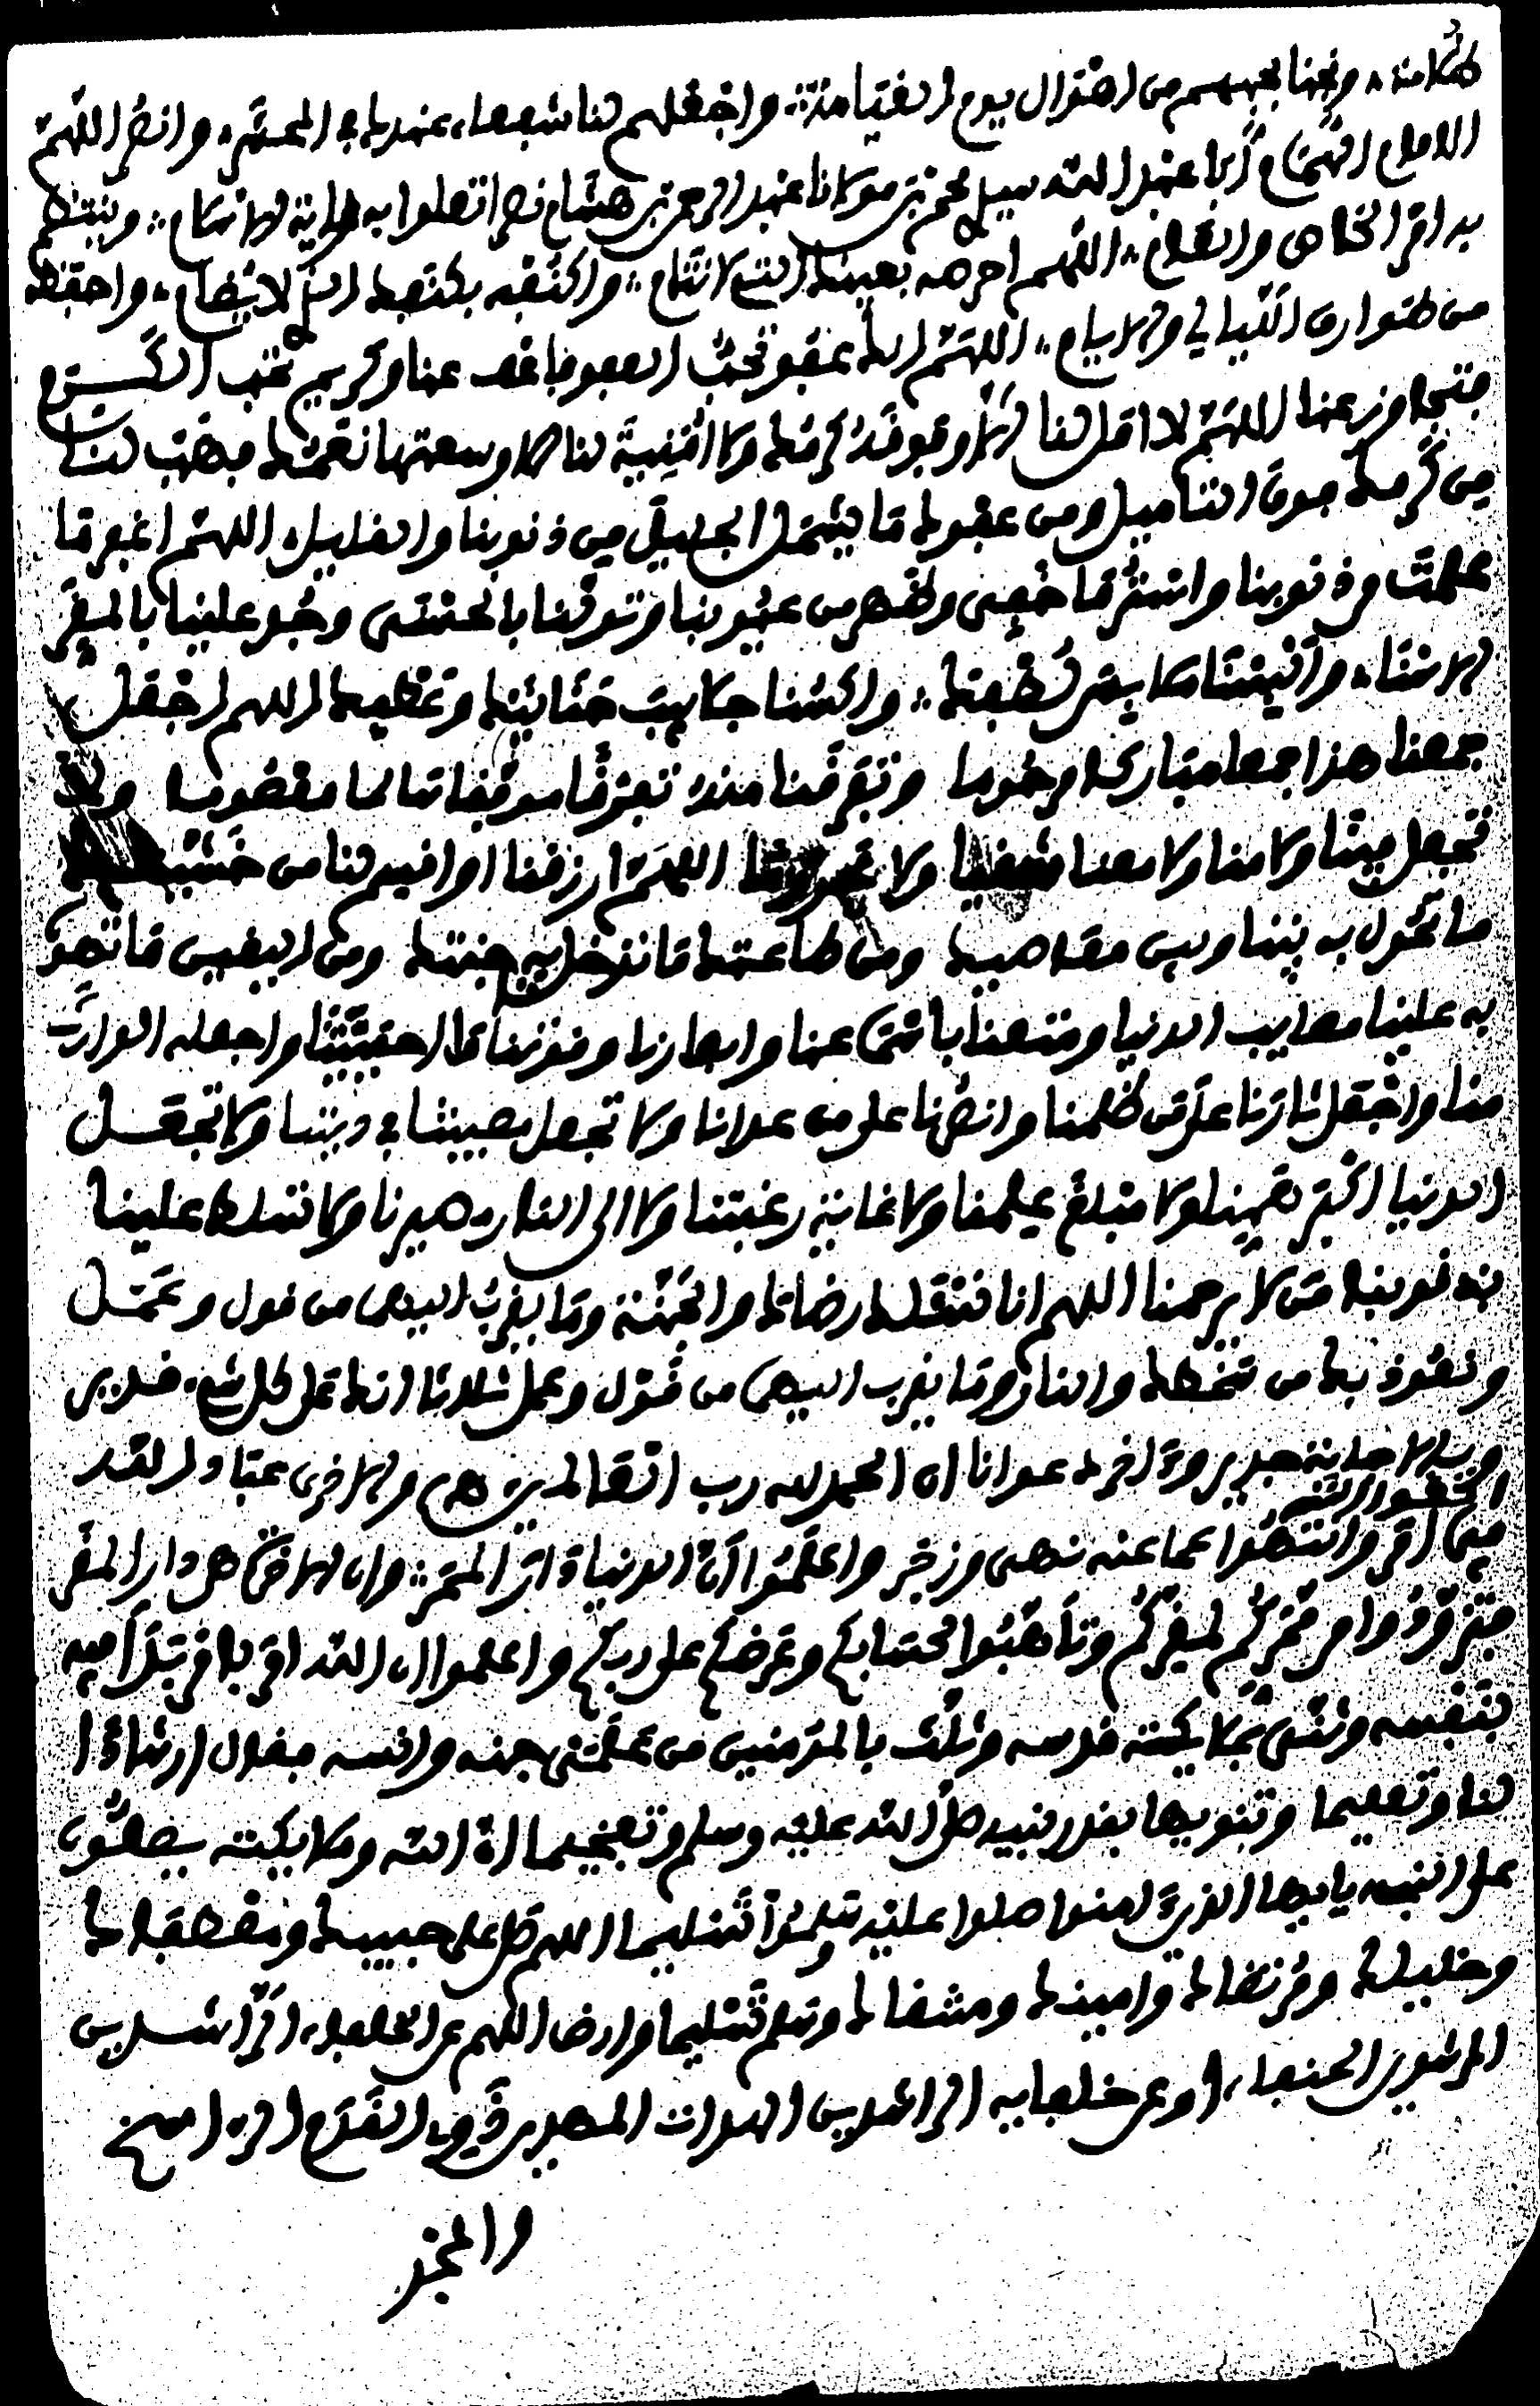 ونجنا بحبهم من اهوال يوم القيامة واجعلهم لنا شفعاء عندك في المحشر وانصر اللهم
الامام الهمام ابا عبد الله سيدي محمد بن مولانا عبد الرحمن بن هشام نصرا تعلوا به راية الاسلام وينتظم
به امر الخاص والعام اللهم احرسه بعينك التي لا تنام واكنفه بكنفك الذي لا يضام واحفظه
من طوارق الليالي والايام اللهم انك عفو تحب العفو فاعف عنا وكريم تحب الكرم
فتجاوز عنا اللهم لا امل لنا الا وفوقه كرمك ولا لنا الا وسعتها نعمتك فهب لنا
من كرمك فوق التاميل ومن عفوك ما يشمل الجليل من ذنوبنا والقليل اللهم اغفر ما
علمت من ذنوبنا واستر ما خفي وظهر من عيوبنا وتوفنا بالحسنى وجد علينا بالمقر
الاسنا والبسنا ملابس لطفك واكسنا جلابيب حنانتك وعطفك اللهم اجعل
جمعنا هذا جمعا مباركا مرحوما وتفرقنا منه تفرقا موفقا سالما معصوما ولا
تجعل فينا ولا منا ولا معنا شقيا ولا محروما اللهم ارزقنا او اقسم لنا من خشيتك
ما تحول به بيننا وبين معاصيك ومن طاعتك ما تدخلنا به جنتك ومن اليقين ما تهون
به علينا مصايب الدنيا ومتعنا باسماعنا وابصارنا وقوتنا ما احييتنا واجعله الوارث
منا واجعل ثارنا على من ظلمنا وانصرنا على من عدانا ولا تجعل مصيبتنا في ديننا ولا تجعل
الدنيا اكبر همنا ولا مبلغ علمنا ولا غاية رغبتنا ولا الى النار مصيرنا ولا تسلط علينا
بذنوبنا من لا يرحمنا اللهم انا نسئلك رضاك والجنة وما يقرب اليهما من قول وعمل
ونعوذ بك من سخطك والنار وما يقرب اليهما من قول وعمل ثلاثا انك على كل شيء قدير
وبالاجابة جدير وءاخر دعوانا ان الحمد لله رب العالمين ولاخرى عباد الله
اتقوا الله
فيما امر وانتهوا عما عنه نهى وزجر واعلموا ان الدنيا دار الممر وان الاخرة هي دار المقر
فتزودوا من ممركم لمقركم وتاهبوا لحسابكم وعرضكم على ربكم واعلموا ان الله امر بامر بدا فيه
بنفسه وثنى بملايكته قدسه وثلث بالمومنين من عالمي جنه وانسه فقال ارشادا
لنا وتعليما وتنويها بقدر نبيه صلى الله عليه وسلم وتفخيما ان الله وملايكته يصلون
على النبيء يايها الذين ءامنوا صلوا عليه وسلموا تسليما اللهم صل على حبيبك ومصطفاك
وخليلك ومرتضاك وامينك وسلم تسليما وارض اللهم عن الخلفاء
الحنفاء اي وعن خلفايه الراشدين الهداة المهديين ذوي القدم الراسخ
والمجد